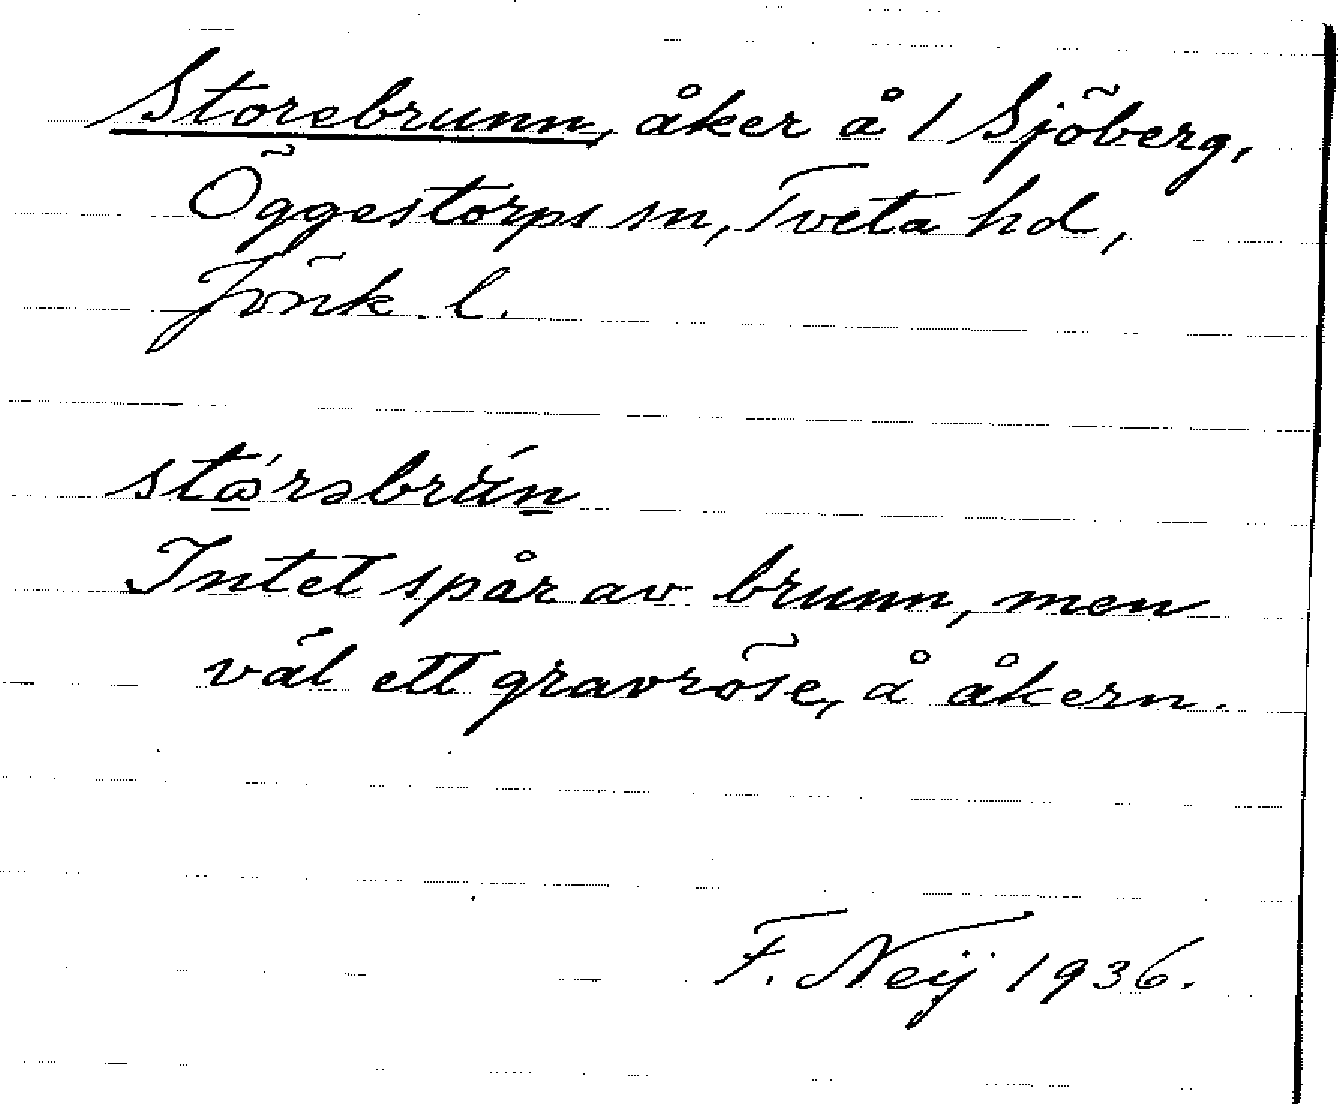 Storebrunn, åker å 1 Sjöberg,
Öggestorps sn, Tveta hd,
Jönk. l.
Intet spår av brunn, men
väl ett gravröse, å åkern.
F. Neij 1936.